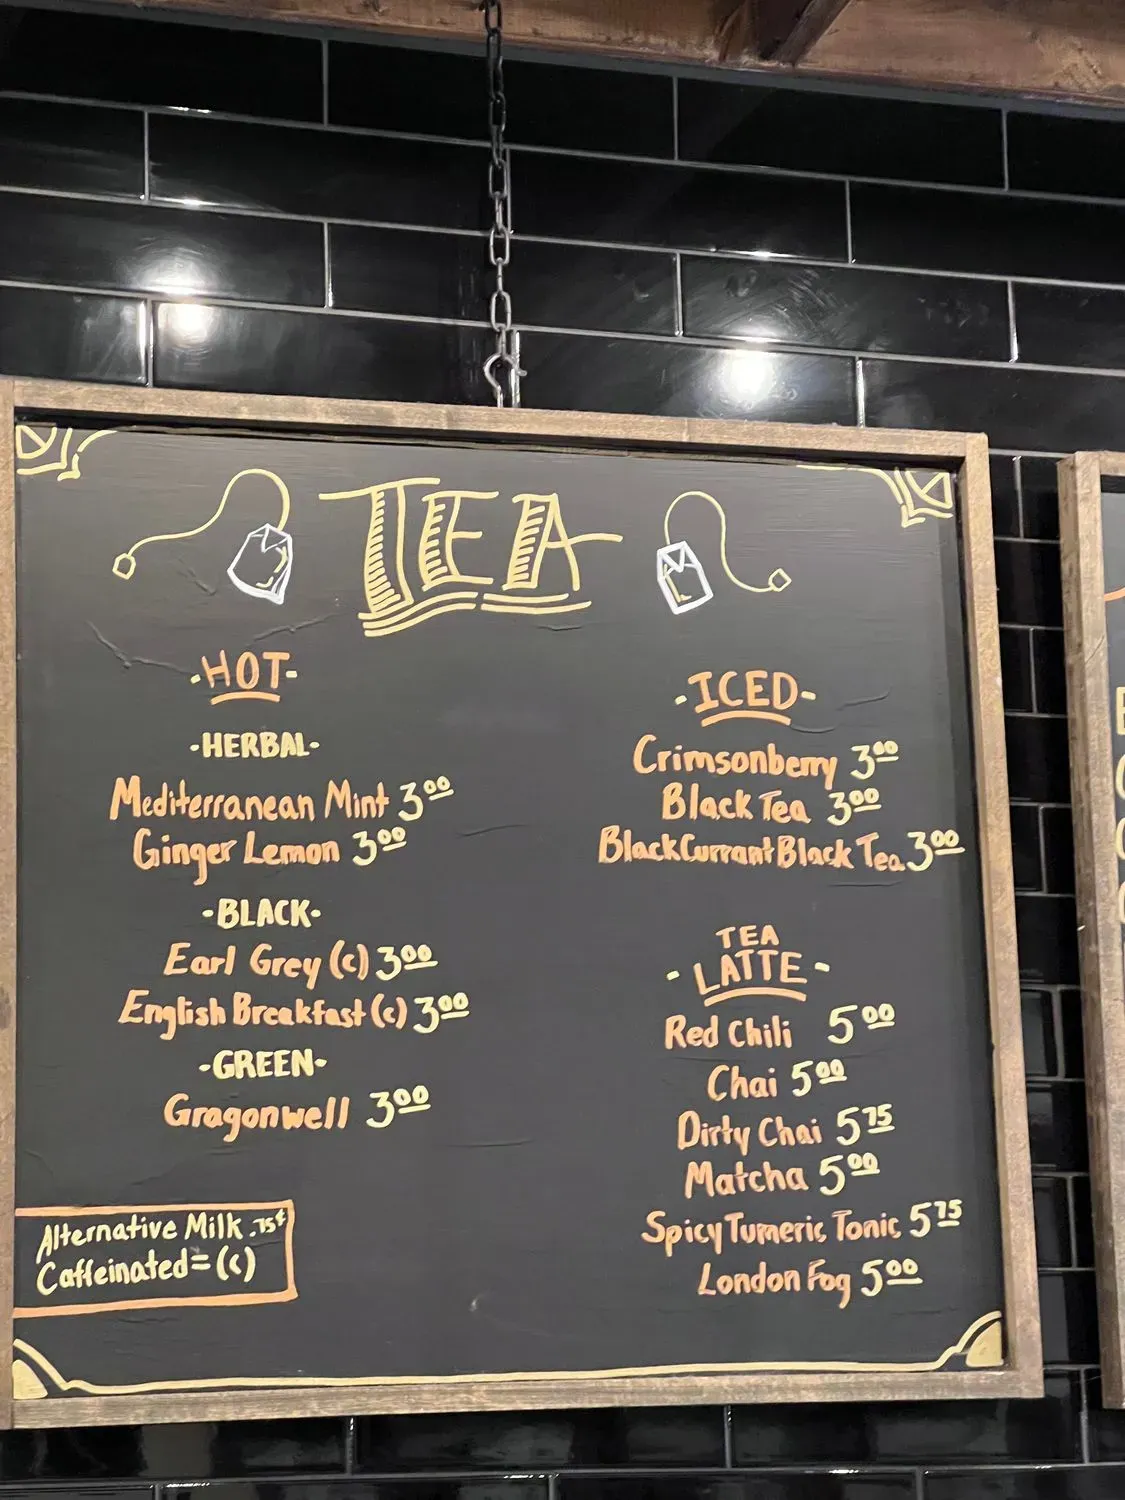 TEA
·HOT·
·HERBAL·
Mediterranean Mint 3.00
Ginger Lemon 3.00
·BLACK·
Earl Grey (c) 3.00
English Breakfast (c) 3.00
·GREEN·
Gragonwell 3.00
Alternative Milk .75¢
Caffeinated = (c)
·ICED·
Crimsonberry 3.00
Black Tea 3.00
BlackCurrant Black Tea 3.00
TEA
·LATTE·
Red Chili 5.00
Chai 5.00
Dirty Chai 5.75
Matcha 5.00
Spicy Tumeric Tonic 5.75
London Fog 5.00